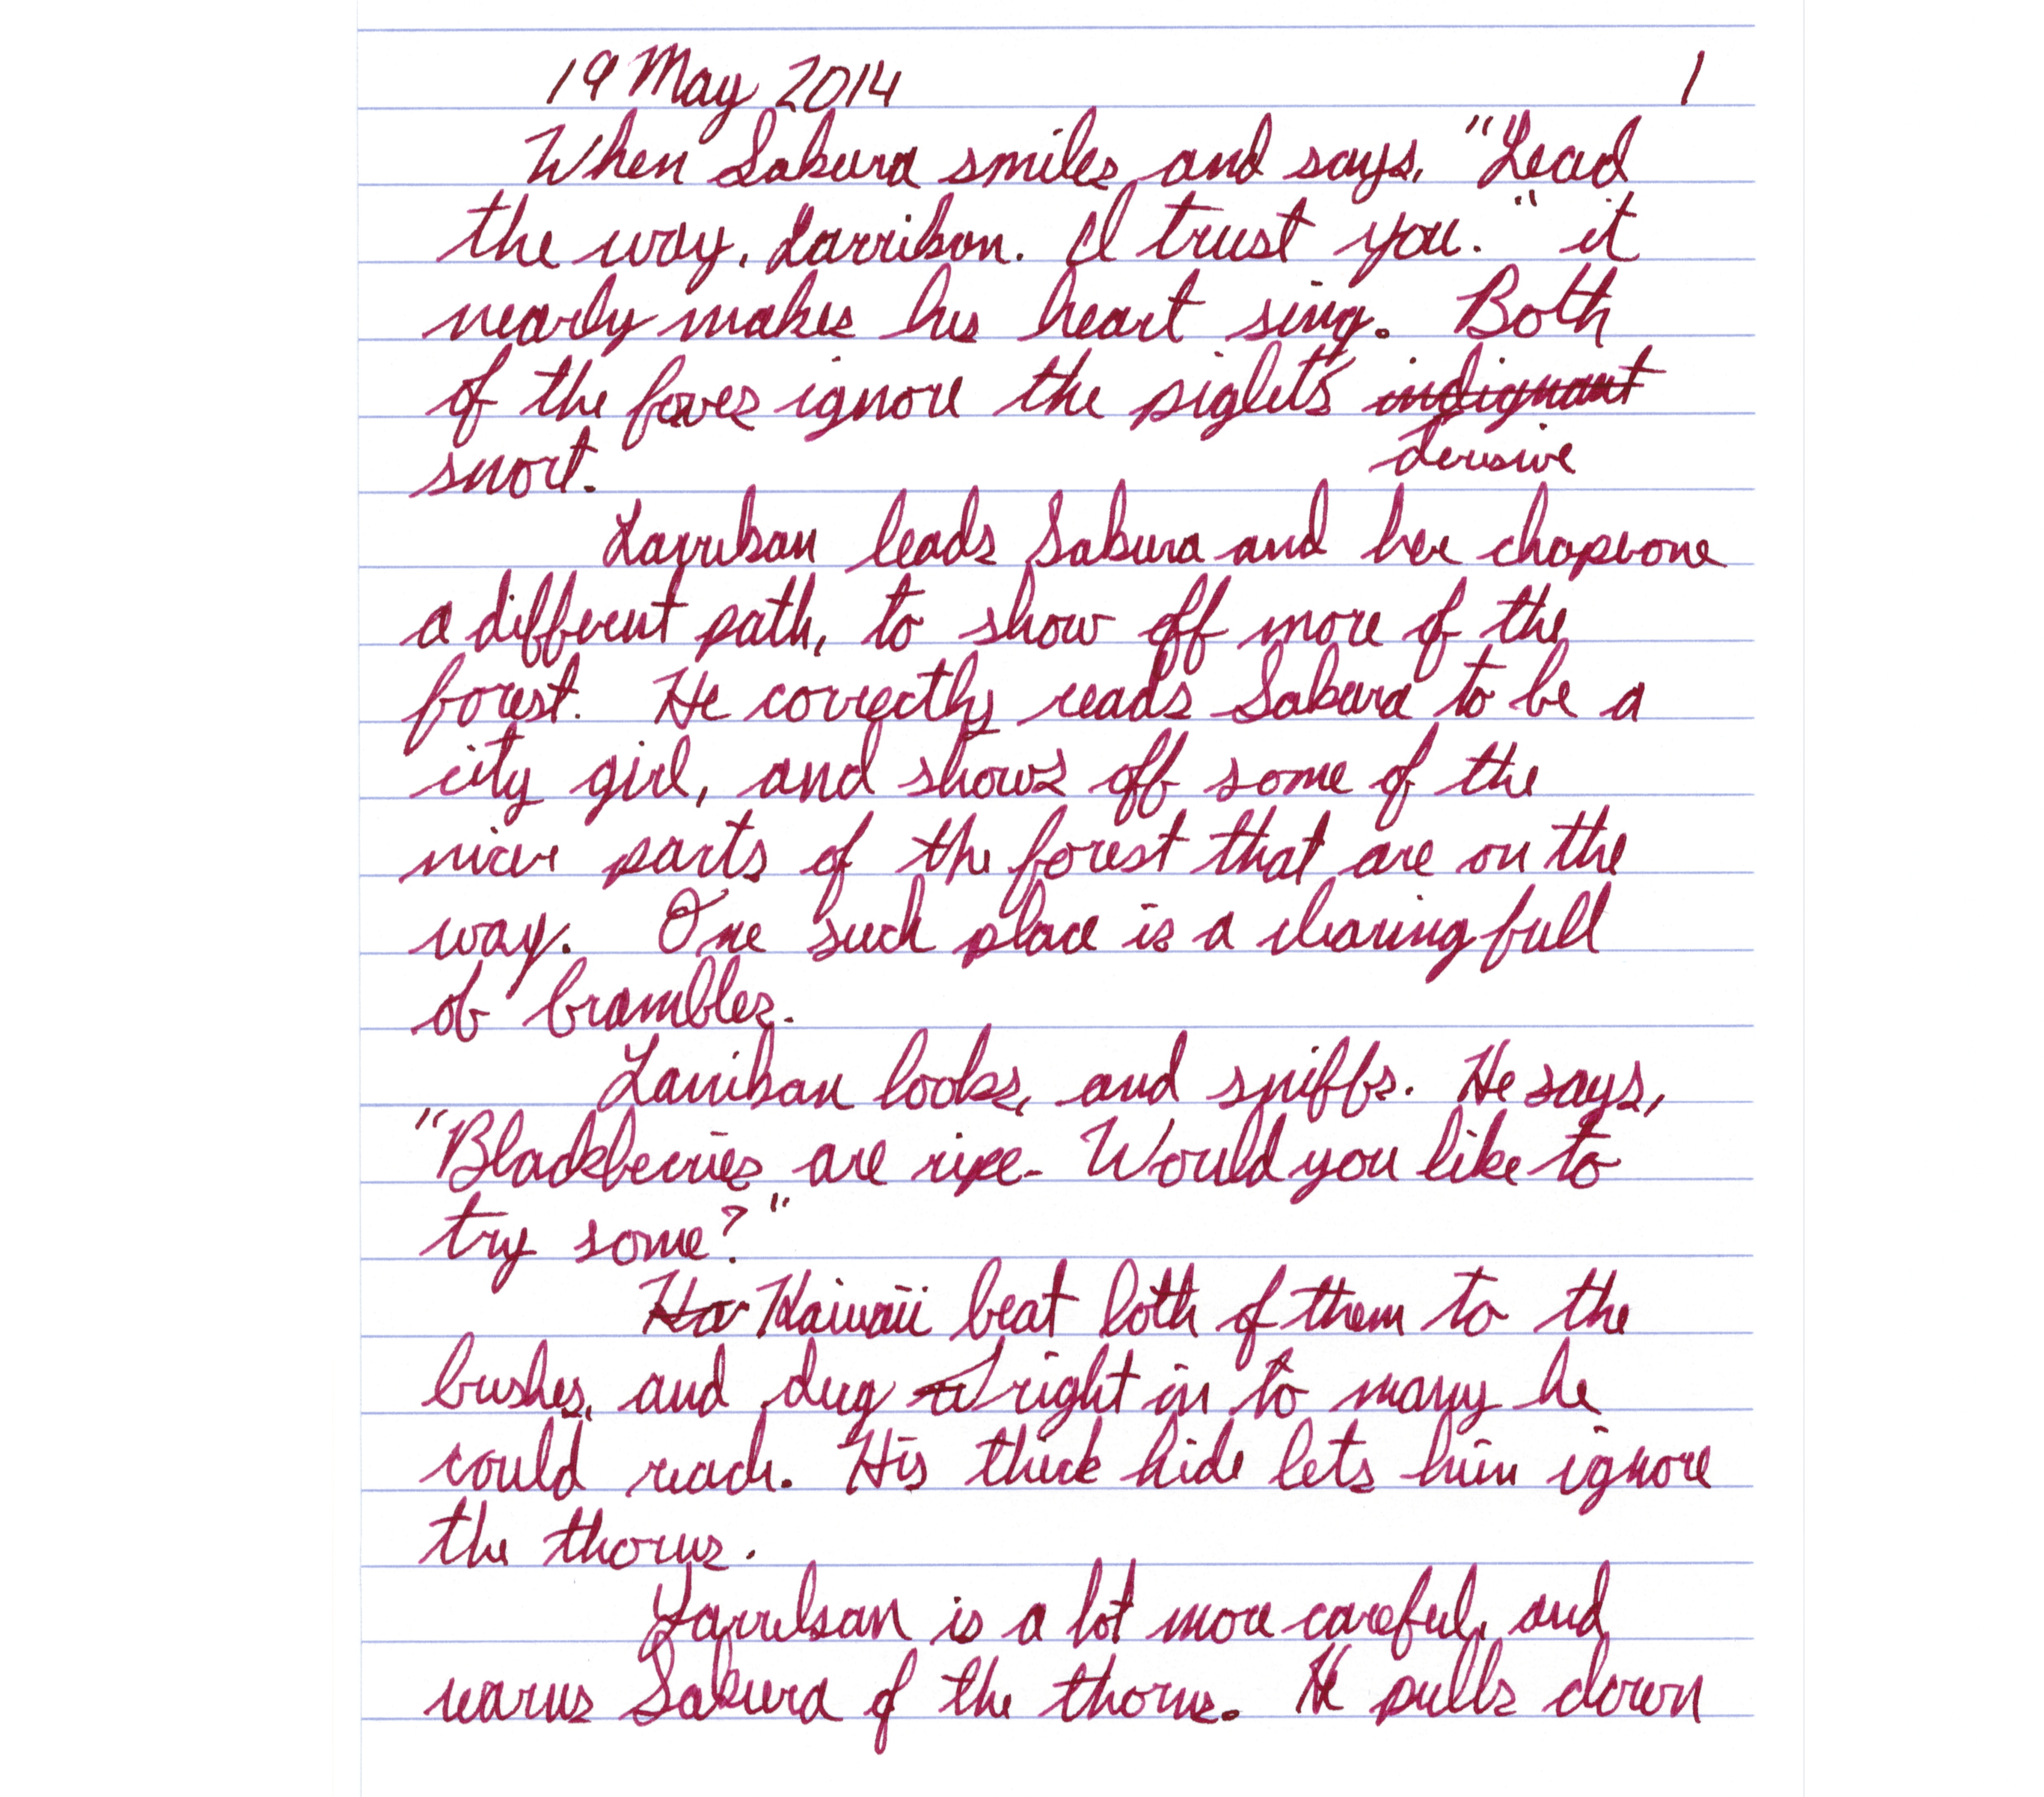 19 May 2014 1
When Sakura smiles and says, "Lead
the way, Larrikan. I trust you." it
nearly makes his heart sing. Both
of the foxes ignore the piglet's indignant
derisive
snort.
Larrikan leads Sakura and her chaperone
a different path, to show off more of the
forest. He correctly reads Sakura to be a
city girl, and shows off some of the
nicer parts of the forest that are on the
way. One such place is a clearing full
of brambles.
Larrikan looks, and sniffs. He says,
"Blackberries are ripe. Would you like to
try some?"
Ha Hawaii beat both of them to the
bushes, and dug right in to many he
could reach. His thick hide lets him ignore
the thorns.
Larrikan is a lot more careful, and
warns Sakura of the thorns. He pulls down